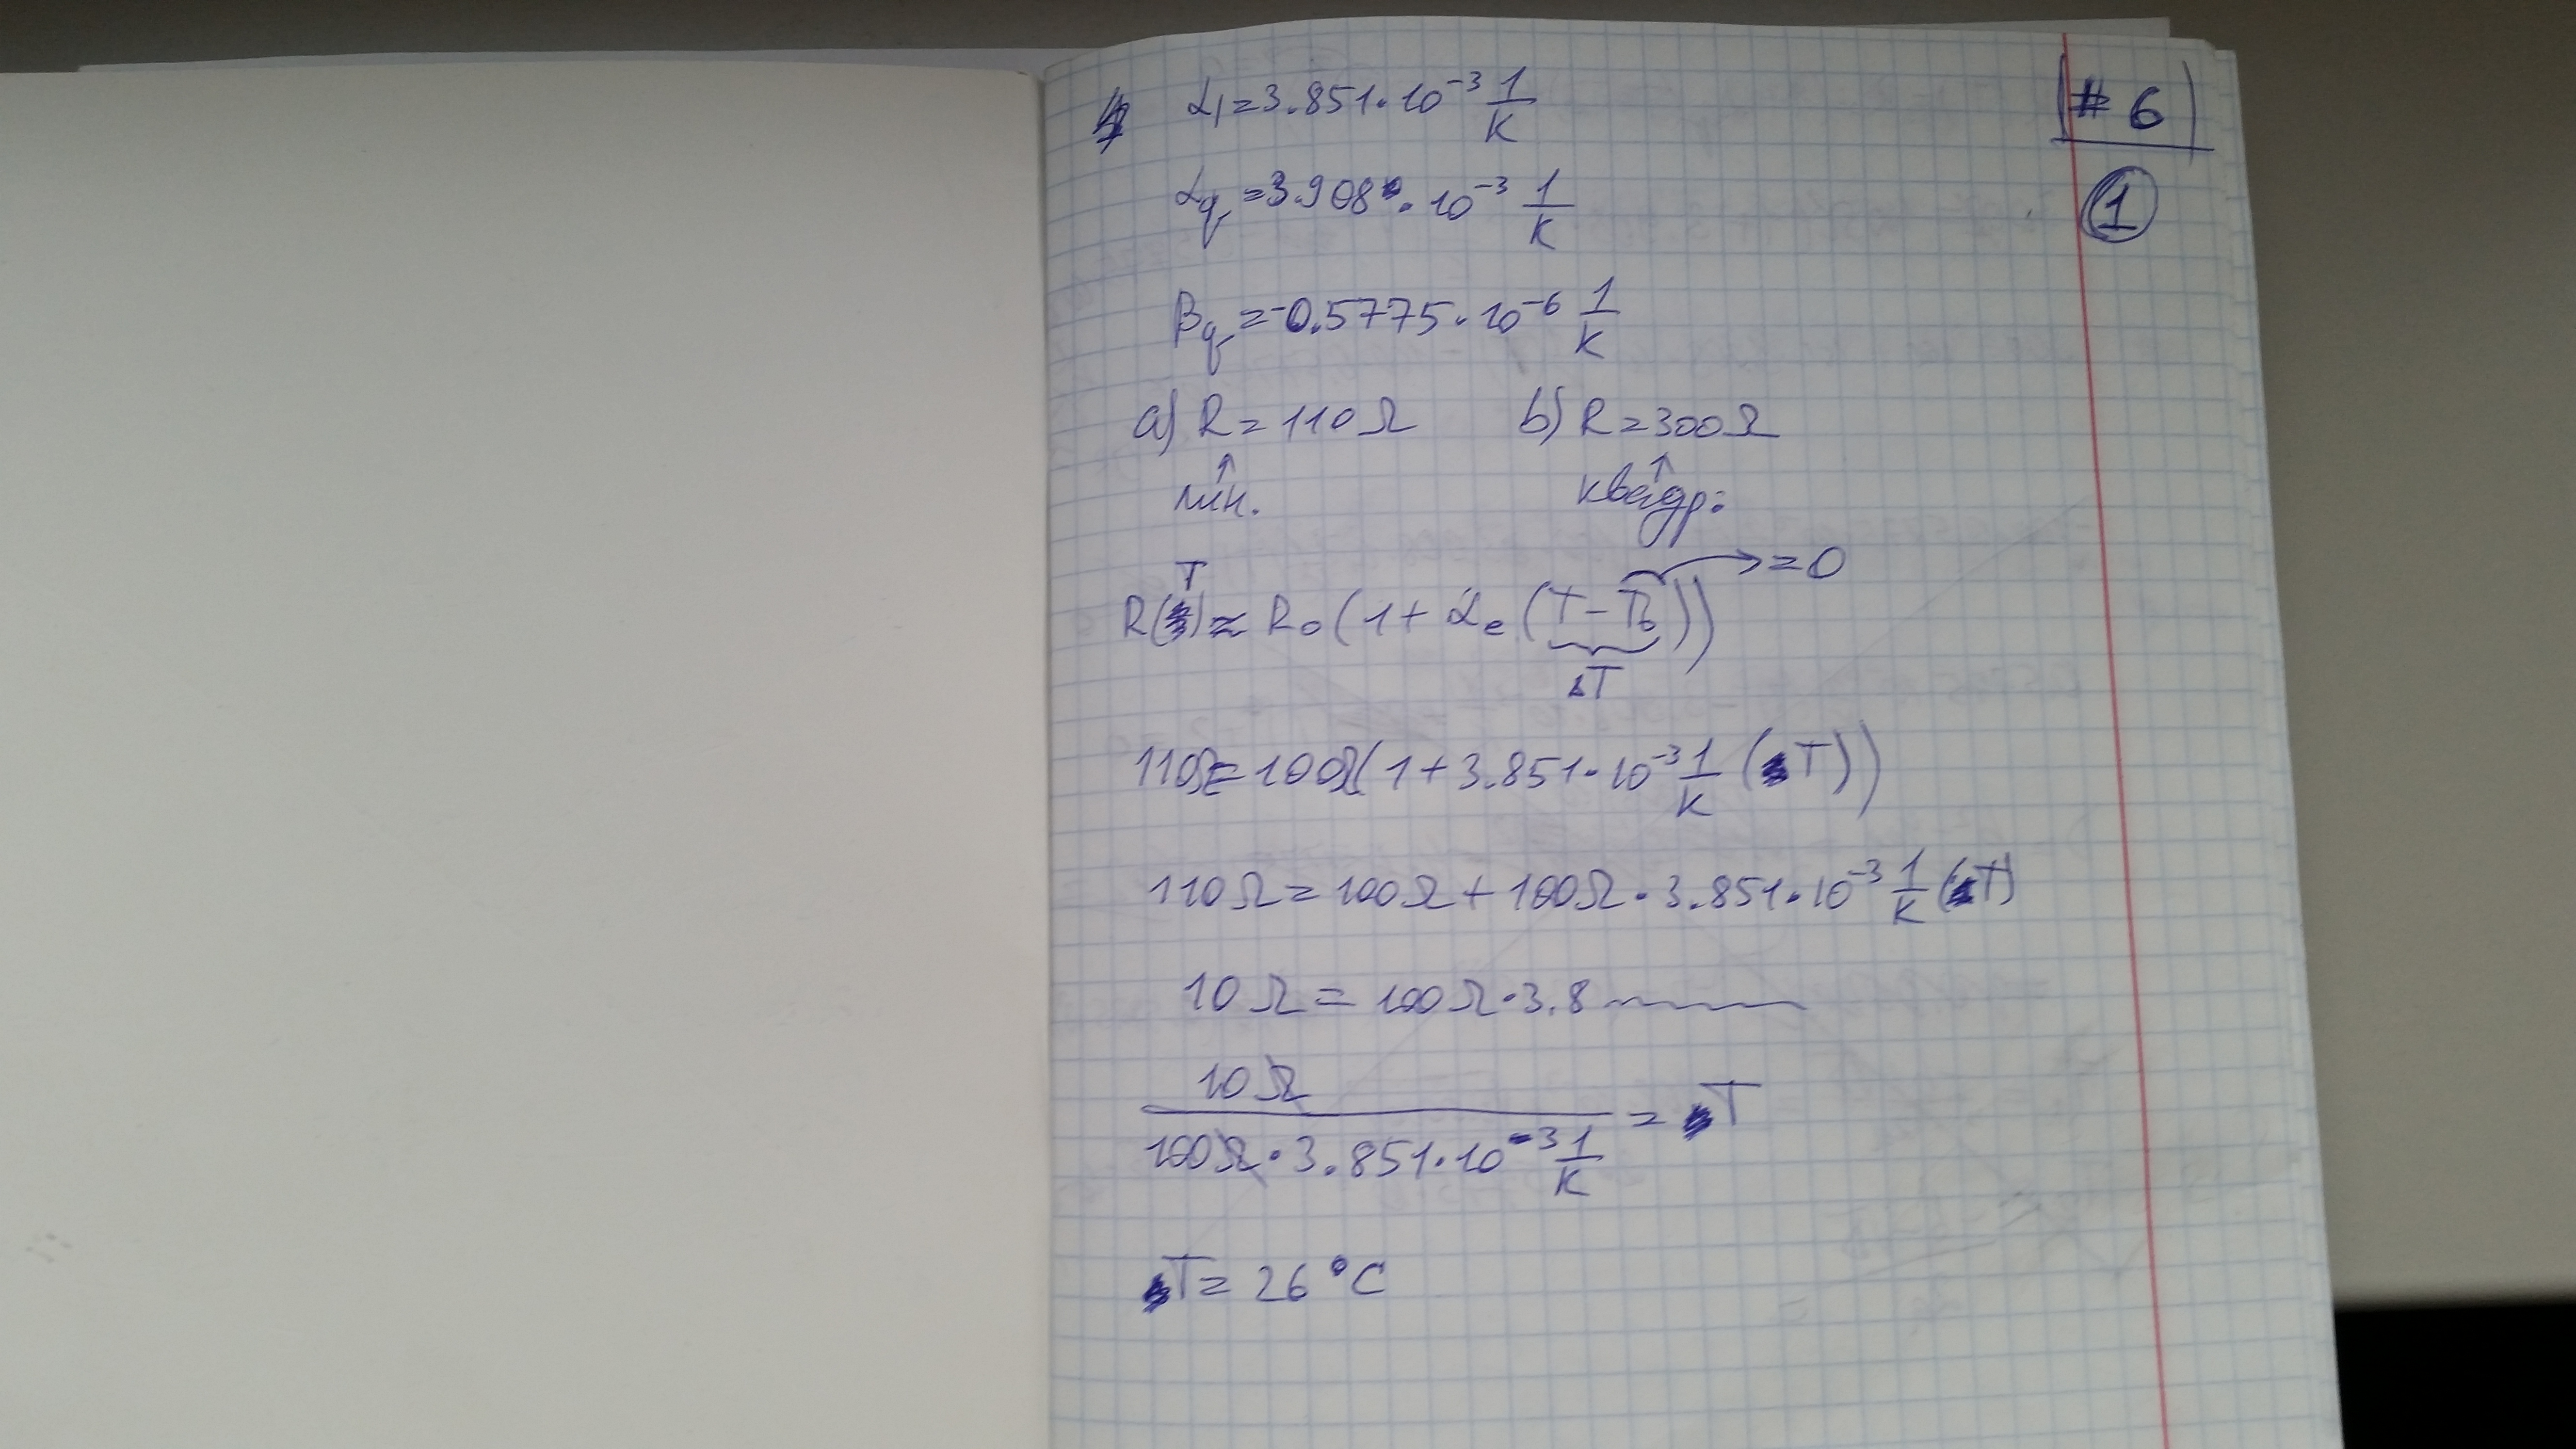 # 6
1
α₁=3.851·10⁻³ 1/K
αq=3.908·10⁻³ 1/K
βq=-0.5775·10⁻⁶ 1/K
a) R=110Ω b) R=300Ω
↑ ↑
лін. квадр:
R(T)≈R₀(1+αe(T-T₀)) →=0
ΔT
110Ω=100Ω(1+3.851·10⁻³ 1/K (T))
110Ω=100Ω+100Ω·3.851·10⁻³ 1/K (T)
10Ω=100Ω·3.8
10Ω/(100Ω·3.851·10⁻³ 1/K) = T
T=26°C